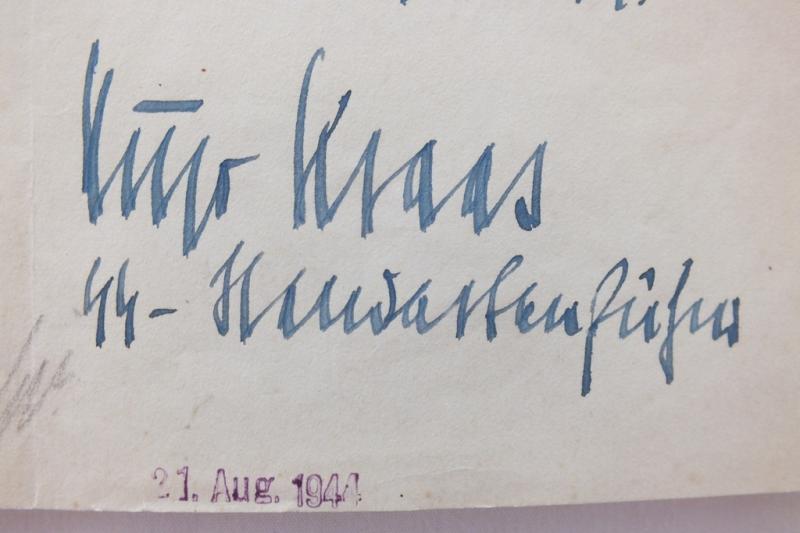 Hugo Kraas
SS-Standartenführer
21. Aug. 1944